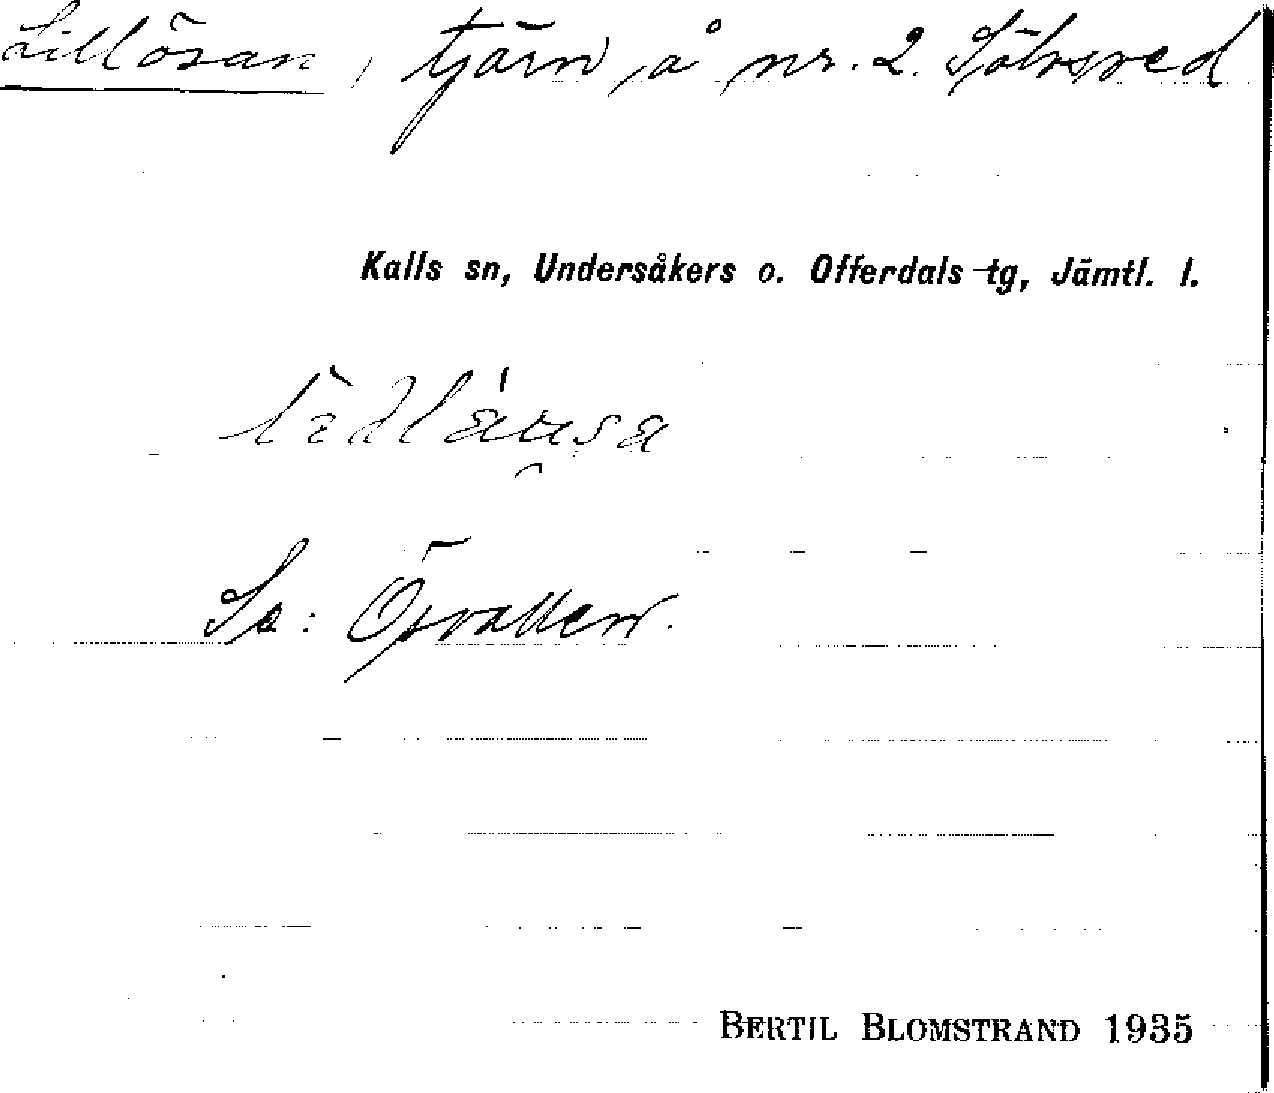 Lillösan, tjärn å nr. 2. Sölvsved
Kalls sn, Undersåkers o. Offerdals tg, Jämtl. l.
Se: Ösvallen.
BERTIL BLOMSTRAND 1935